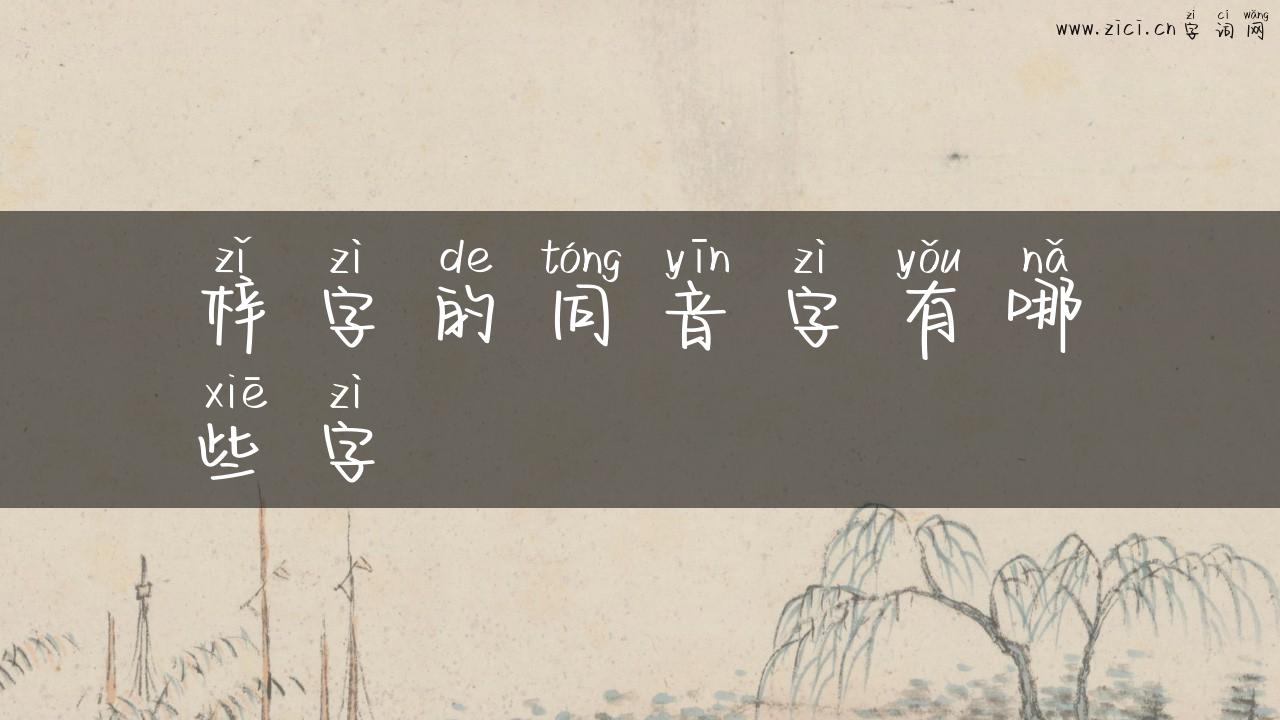 zì cí wǎng
www.zici.cn字词网
zǐ zì de tóng yīn zì yǒu nǎ
梓字的同音字有哪
xiē zì
些字